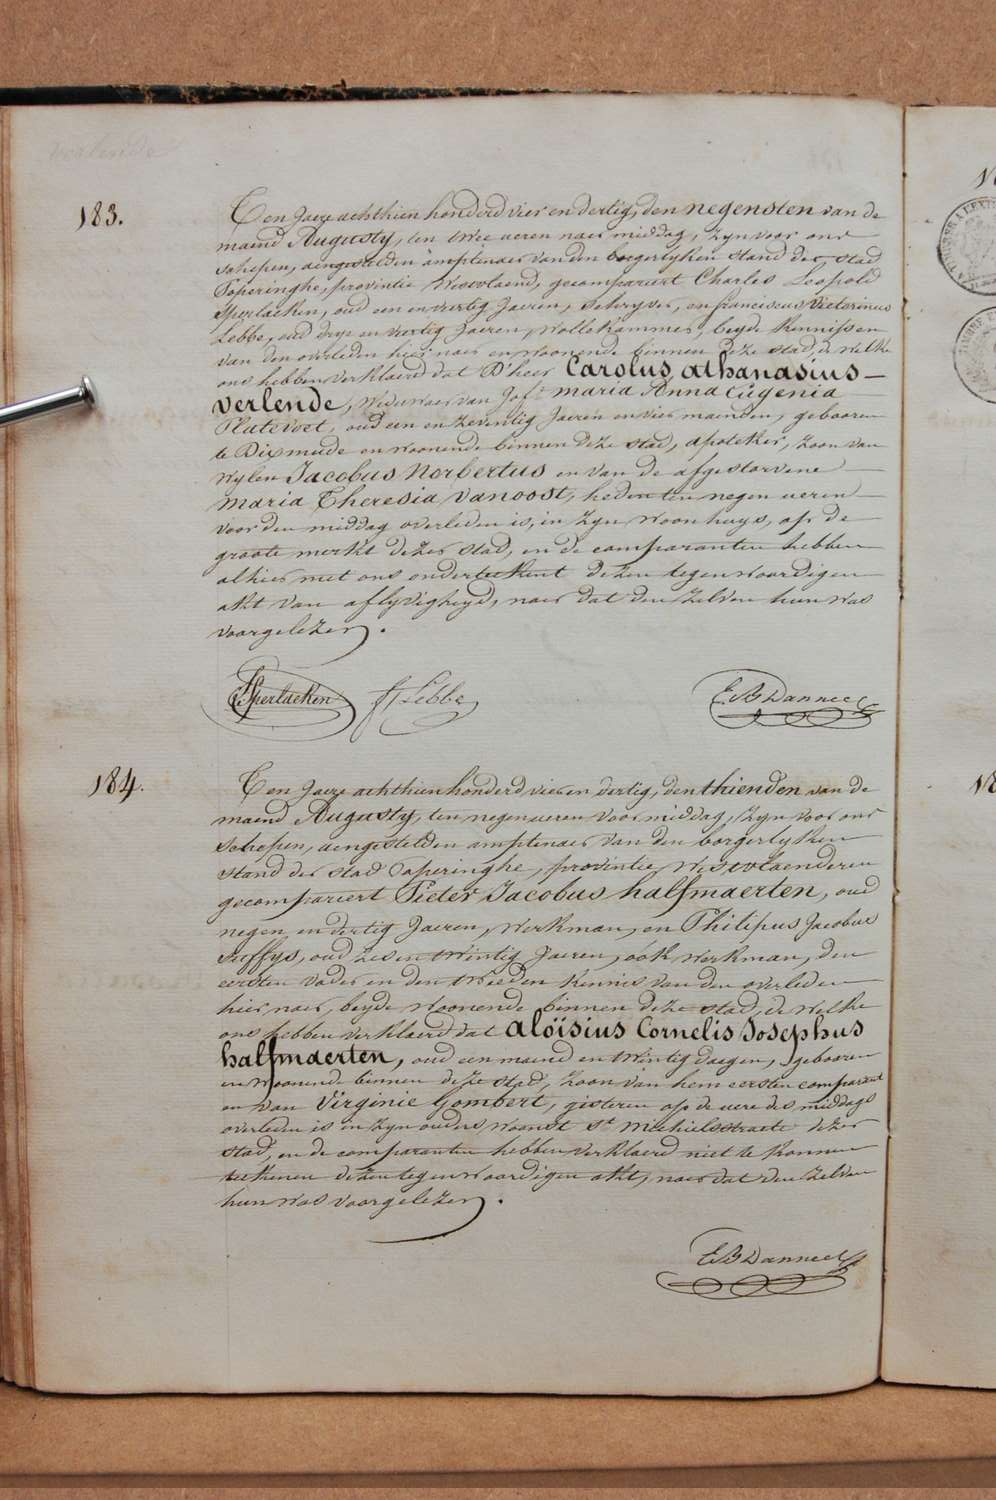 183.
Ten Jaere achthien honderd vier en dertig, den negensten van de
maend Augusty, ten twee ueren naer middag, zyn voor ons
schepen, aengestelden amptenaer van den borgerlyken stand der stad
Poperinghe, provintie Westvlaend, gecompariert Charles Leopold
Sperlaeken, oud een en veertig Jaeren, Schryver, en franciscus Victorinus
Lebbe, oud drye en veertig Jaeren, wollekammer, beyde kennissen
van den overleden hier naer en woonende binnen deze stad, de welke
ons hebben verklaerd dat D'heer Carolus athanasius
verlende, weduwaer van Jof.e maria Anna Eugenia
Platevoet, oud een en zeventig Jaeren en vier maenden, gebooren
te Dixmude en woonende binnen deze stad, apoteker, zoon van
wylen Jacobus Norbertus en van de afgestorvene
maria Theresia vanoost, heden ten negen ueren
voor den middag overleden is, in zyn woonhuys, op de
groote merkt dezer stad, en de comparanten hebben
alhier met ons onderteekent dezen tegenwoordigen
akt van aflyvigheyd, naer dat den zelven hun was
voorgelezen.
Sperlaeken
Lebbe
E B Danneel
184.
Ten Jaere achthien honderd vier en dertig, den thienden van de
maend Augusty, ten negen ueren voormiddag, zyn voor ons
schepen, aengestelden amptenaer van den borgerlyken
stand der stad Poperinghe, provintie Westvlaenderen
gecompariert Pieter Jacobus halfmaerten, oud
negen en dertig Jaeren, werkman, en Philipus Jacobus
oud zes en twintig Jaeren, óók werkman, den
eersten vader en den tweeden kennis van den overleden
hier naer, beyde woonende binnen deze stad, de welke
ons hebben verklaerd dat aloïsius Cornelis Josephus
halfmaerten, oud een maend en twintig daegen, gebooren
en woonende binnen deze stad, zoon van hem eersten comparant
en van Virginie Gombert, gisteren op de uere des middags
overleden is in zyn ouders woonst St Michielsstraete dezer
stad, en de comparanten hebben verklaerd niet te konnen
teekenen dezen tegenwoordigen akt, naer dat den zelven
hun was voorgelezen.
E B Danneel